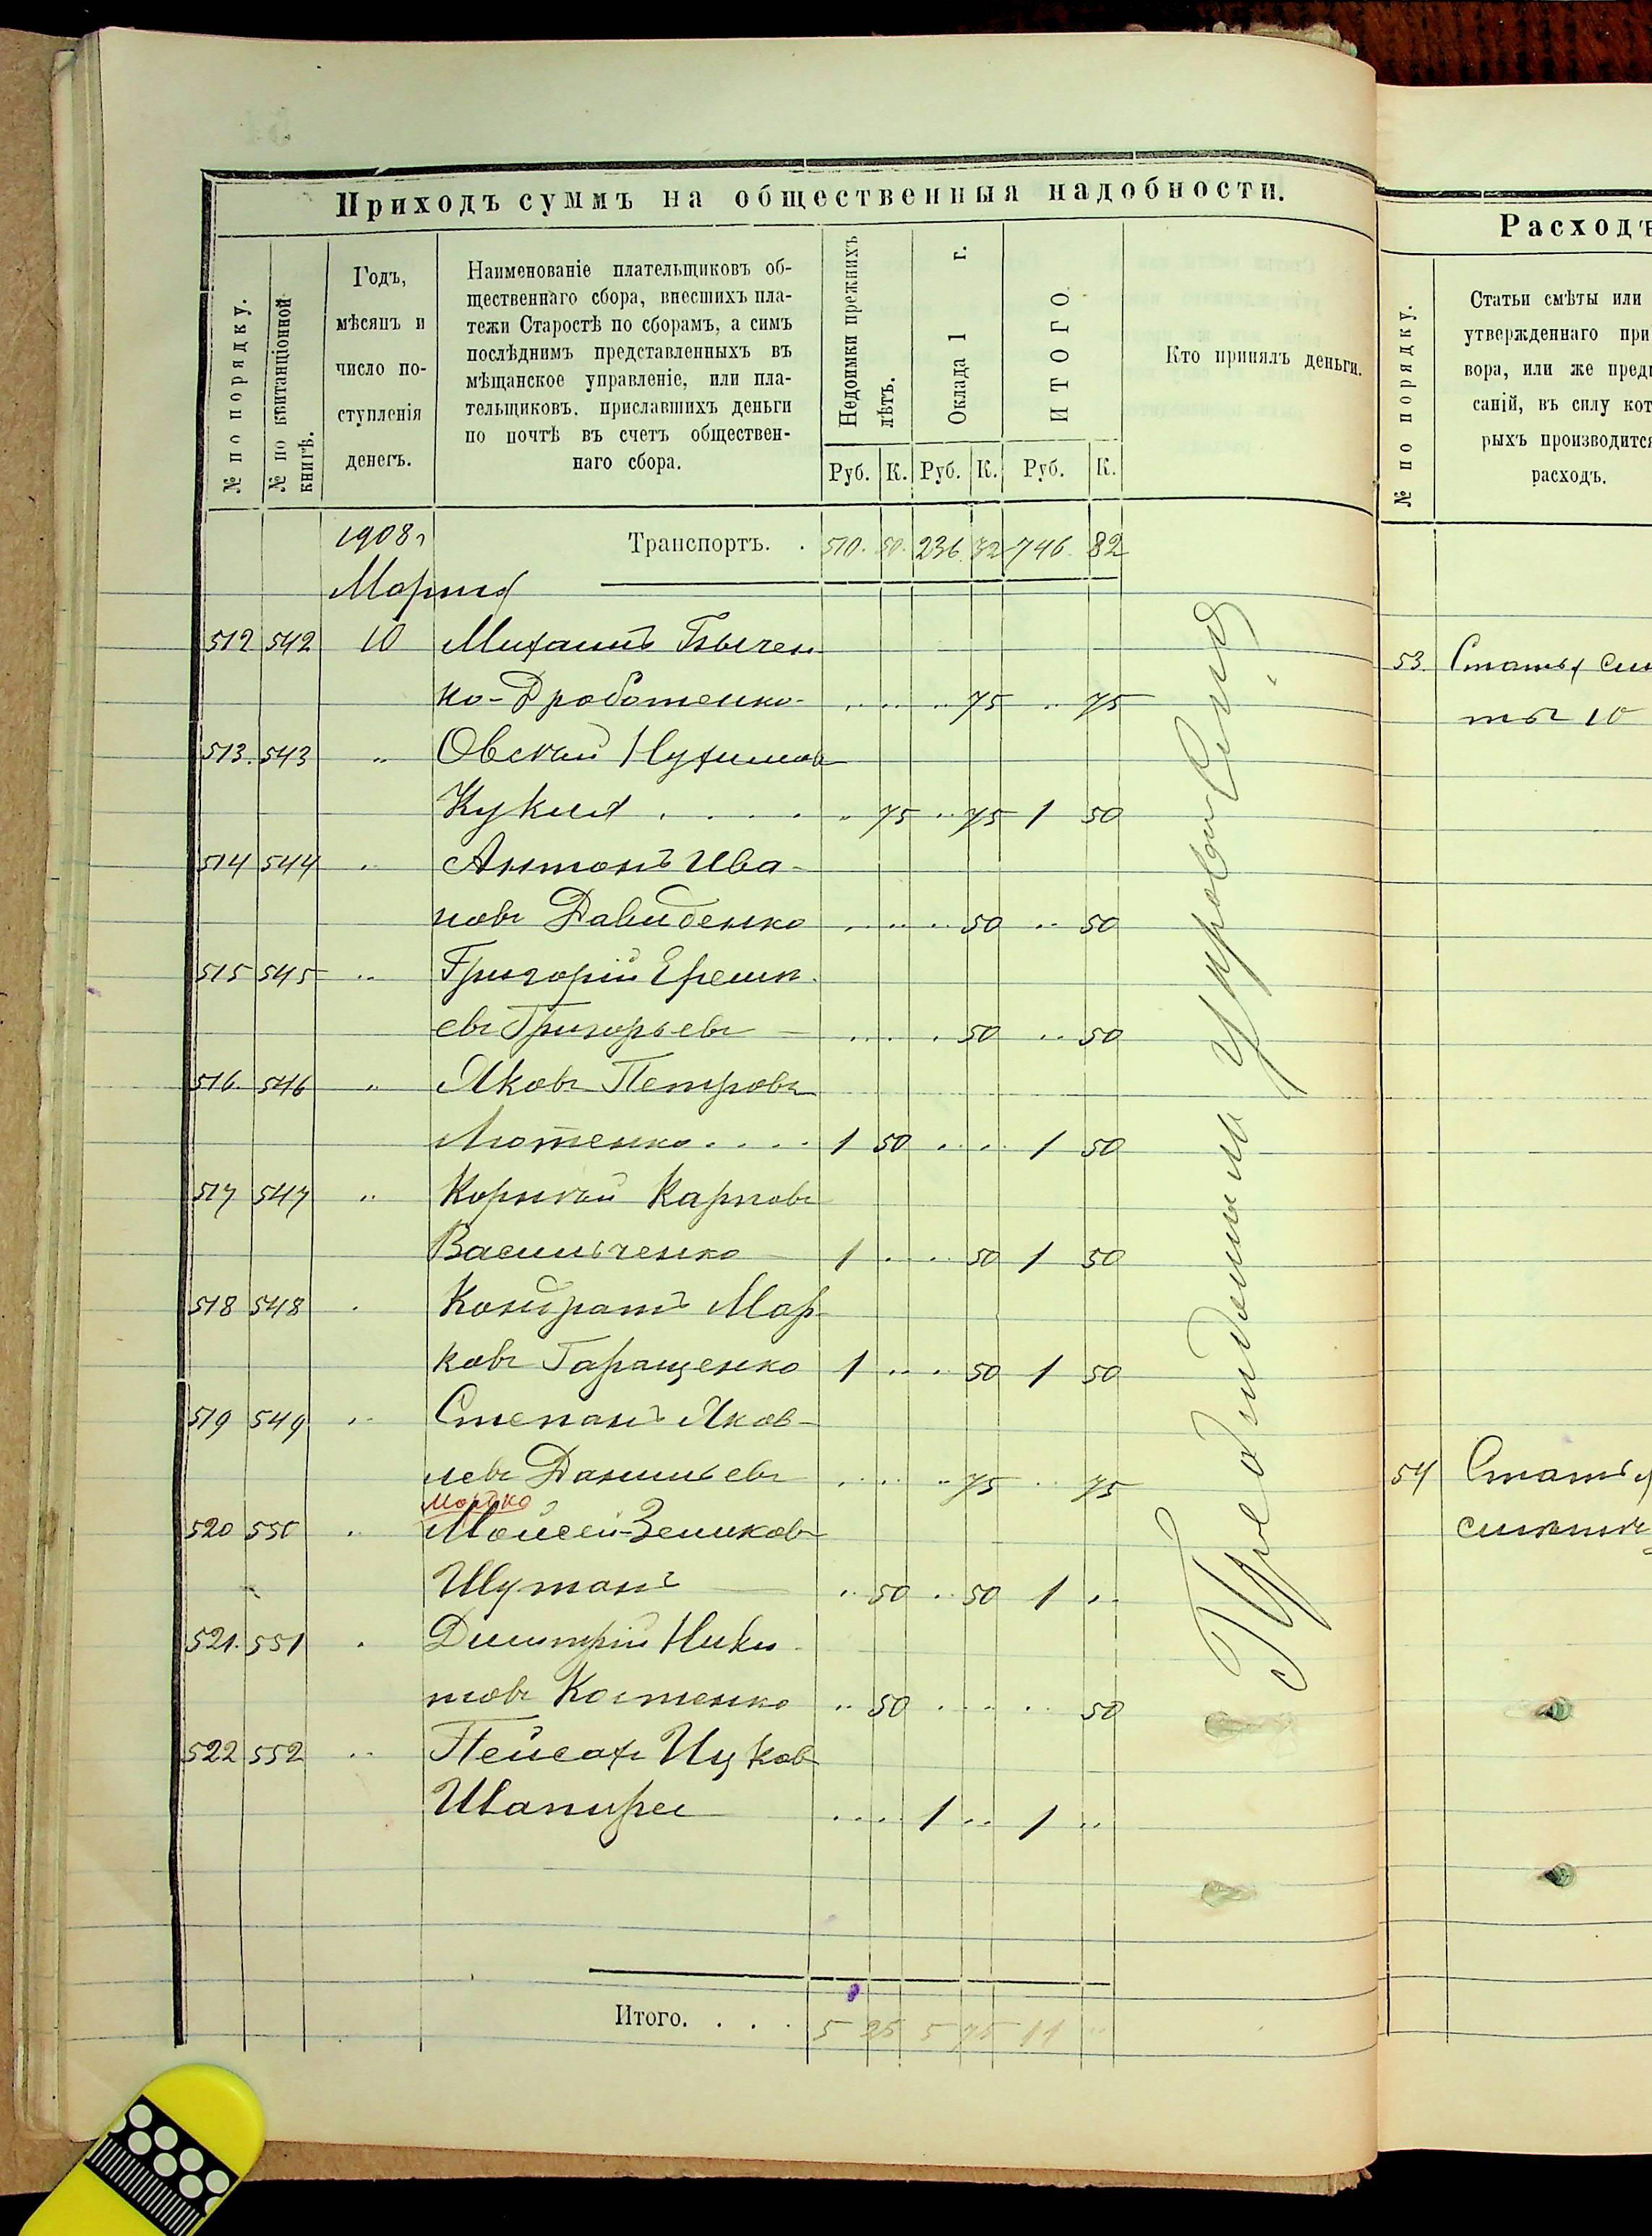 Приходъ суммъ на общественныя надобности.
№ по порядку.
№ по квитанціонной книгѣ.
Годъ,
мѣсяцъ и
число по-
ступленія
денегъ.
Наименованіе плательщиковъ об-
щественнаго сбора, внесшихъ пла-
тежи Старостѣ по сборамъ, а симъ
послѣднимъ представленныхъ въ
мѣщанское управленіе, или пла-
тельщиковъ. приславшихъ деньги
по почтѣ въ счетъ обществен-
наго сбора.
Недоимки прежнихъ лѣтъ.
Оклада 1 г.
ИТОГО
Кто принялъ деньги.
Руб. К. Руб. К. Руб. К.
1908 г Транспортъ. . 510. 50. 236 32 746. 82
Марта
512 542 10 Михаилъ Бычен
ко-Дроботенко- 75 75
513. 543 " Овсей Нухимов
Кукля 75 75 1 50
514 544 " Антонъ Ива-
новъ Давиденко 50 50
515 545 " Григорій Ереме
евъ Григорьевъ 50 50
516. 546 " Яковъ Петровъ
Лютенко 1 50 1 50
517 547 " Корней Карповъ
Васильченко 1 50 1 50
518 548 Кондратъ Мар-
ковъ Гаращенко 1 50 1 50
519 549 " Степанъ Яков-
левъ Данильевъ 75 75
Мордко
520 550 " Мойсей-Зеликовъ
Шуманъ 50 50 1
521. 551 Димитрій Ники
товъ Костенко 50 50
522 552 " Пейсах Ицков
Шапиро 1 1
Итого. . . . 5 25 5 75 11
Расходъ
№ по порядку.
Статьи смѣты или
утвержденнаго при
вора, или же пред
саній, въ силу кот
рыхъ производится
расходъ.
53. Статья см
ты 10
54 Статья